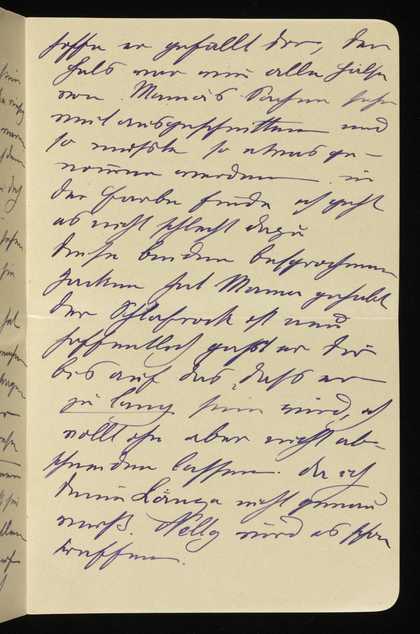 hoffe er gefällt dir, der
Hals war wie alle Hälse
von Mama's Sachen sehr
weit ausgeschnitten und
so musste so etwas ge-
nommen werden in
der Farbe finde ich geht
es nicht schlecht dazu
diese beiden besprochenen
Jacken hat Mama gehabt
der Schlafrock ist neu
hoffentlich passt er dir
bis auf das, dass er
zu lang sein wird, ich
wollt ihn aber nicht ab-
schneiden lassen. da ich
deine Länge nicht genau
weiß. Nelly wird es schon
treffen.